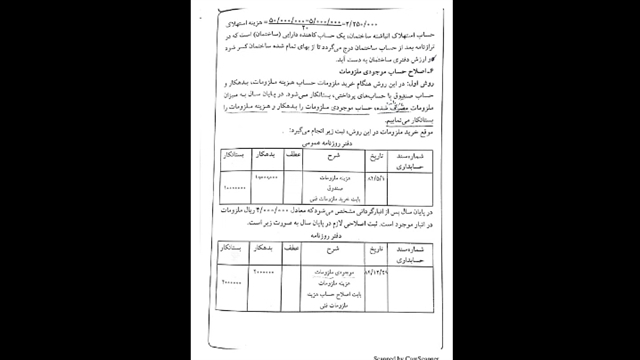 هزینه استهلاک = ۵۰/۰۰۰/۰۰۰-۵/۰۰۰/۰۰۰ / ۲۰ = ۲/۲۵۰/۰۰۰
حساب استهلاک انباشته ساختمان، یک حساب کاهنده دارایی (ساختمان) است که در
ترازنامه بعد از حساب ساختمان درج می‌گردد تا از بهای تمام شده ساختمان کسر شود
و ارزش دفتری ساختمان به دست آید.
۴- اصلاح حساب موجودی ملزومات
روش اول: در این روش هنگام خرید ملزومات حساب هزینه ملزومات، بدهکار و
حساب صندوق یا حساب‌های پرداختنی، بستانکار می‌شود. در پایان سال به میزان
ملزومات مصرف شده، حساب موجودی ملزومات را بدهکار و هزینه ملزومات را
بستانکار می‌نماییم.
موقع خرید ملزومات در این روش، ثبت زیر انجام می‌گیرد:
دفتر روزنامه عمومی
شماره‌سند حسابداری تاریخ شرح عطف بدهکار بستانکار
هزینه ملزومات
صندوق
بابت خرید ملزومات فنی
در پایان سال پس از انبارگردانی مشخص می‌شود که معادل ۲/۰۰۰/۰۰۰ ریال ملزومات
در انبار موجود است. ثبت اصلاحی لازم در پایان سال به صورت زیر است.
دفتر روزنامه
شماره‌سند حسابداری تاریخ شرح عطف بدهکار بستانکار
موجودی ملزومات ۲۰۰۰۰۰۰
هزینه ملزومات ۲۰۰۰۰۰۰
بابت اصلاح حساب هزینه
ملزومات فنی
Scanned by CamScanner